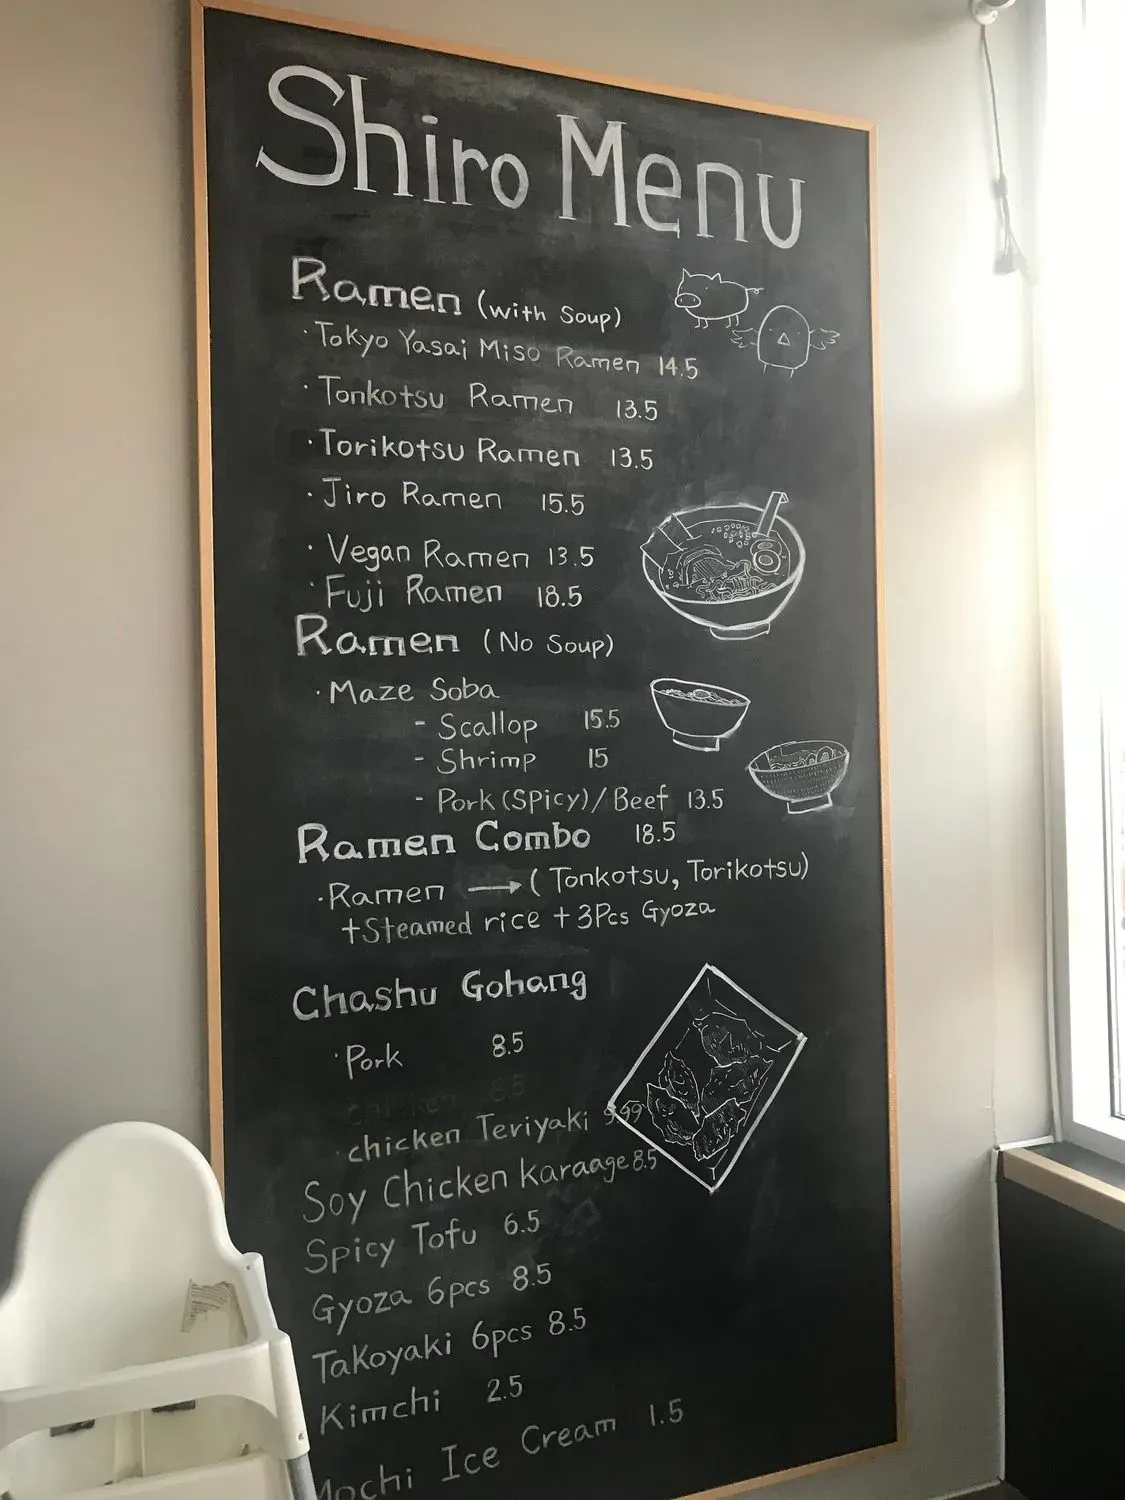 Shiro Menu
Ramen (with Soup)
· Tokyo Yasai Miso Ramen 14.5
· Tonkotsu Ramen 13.5
· Torikotsu Ramen 13.5
· Jiro Ramen 15.5
· Vegan Ramen 13.5
· Fuji Ramen 18.5
Ramen (No Soup)
· Maze Soba
- Scallop 15.5
- Shrimp 15
- Pork (SPicy)/Beef 13.5
Ramen Combo 18.5
· Ramen → (Tonkotsu, Torikotsu)
+Steamed rice + 3Pcs Gyoza
Chashu Gohang
· Pork 8.5
chicken 8.5
· chicken Teriyaki 9.99
Soy Chicken karaage 8.5
Spicy Tofu 6.5
Gyoza 6pcs 8.5
Takoyaki 6pcs 8.5
Kimchi 2.5
Mochi Ice Cream 1.5